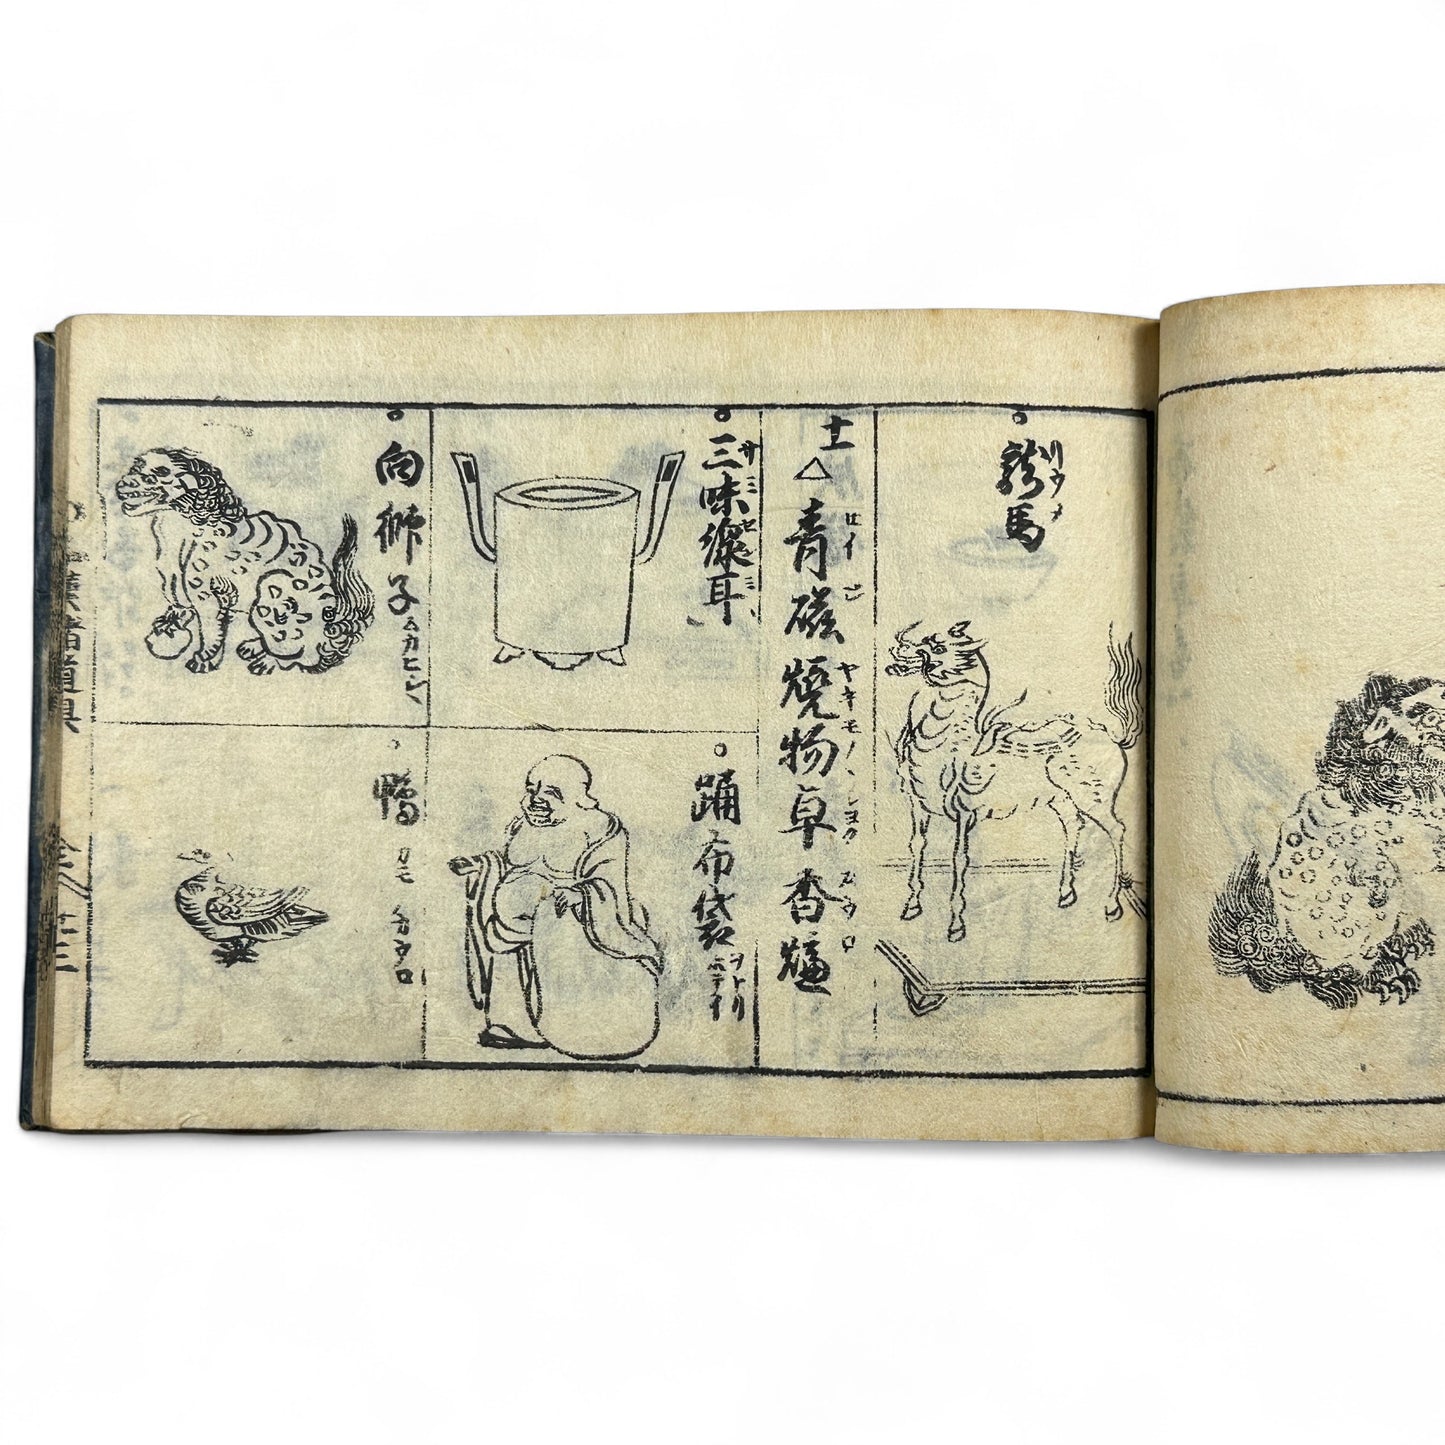 龍馬
リウメ
十一 △ 青磁燒物卓香爐
セイジ ヤキモノ シヨク カウロ
三味線耳
サミセンミミ
踊布袋
ヲトリ ホテイ
向獅子
ムカヒシシ
鴨
カモ カウロ
漢諸道具